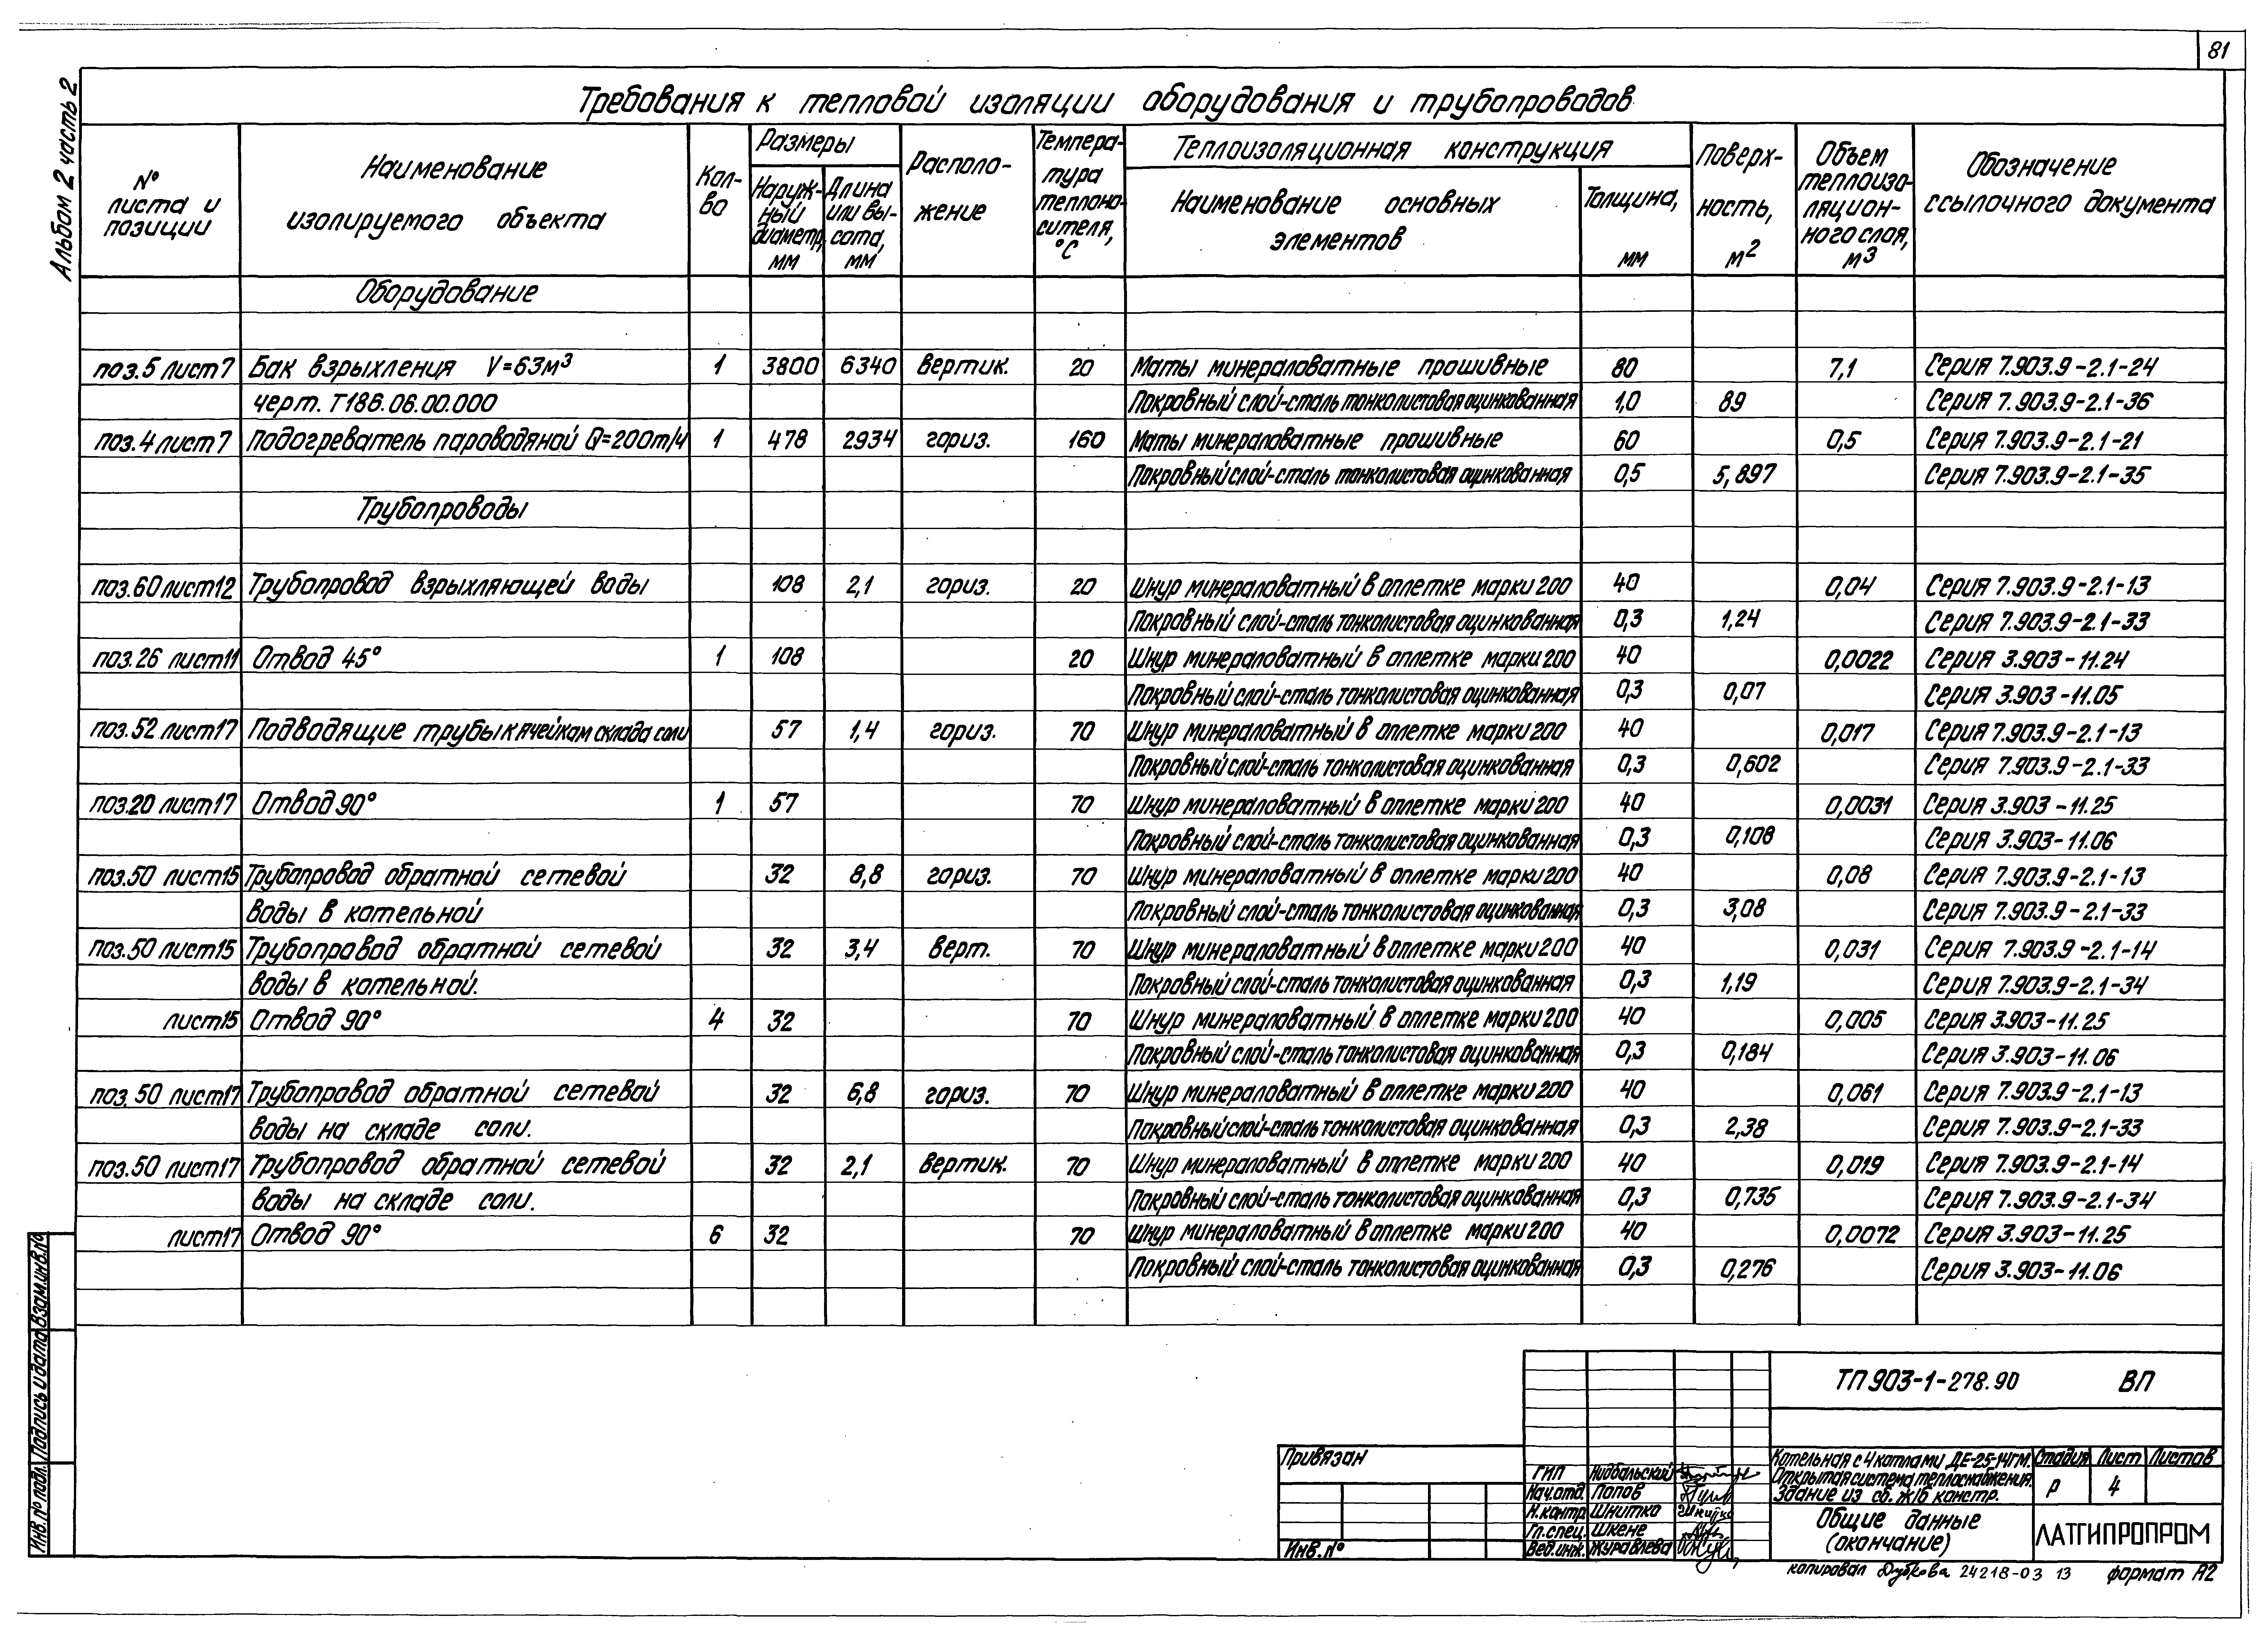 81
Альбом 2 часть 2
Требования к тепловой изоляции оборудования и трубопроводов
№ листа и позиции | Наименование изолируемого объекта | Кол-во | Размеры | Располо-жение | Темпера-тура теплоно-сителя, °С | Теплоизоляционная конструкция | Поверх-ность, м2 | Объем теплоизо-ляцион-ного слоя, м3 | Обозначение ссылочного документа
Наруж-ный диаметр, мм | Длина или вы-сота, мм | Наименование основных элементов | Толщина, мм
Оборудование
поз.5 лист 7 | Бак взрыхления V=63м3 | 1 | 3800 | 6340 | вертик. | 20 | Маты минераловатные прошивные | 80 | 7,1 | Серия 7.903.9-2.1-24
черт. Т186.06.00.000 | Покровный слой-сталь тонколистовая оцинкованная | 1,0 | 89 | Серия 7.903.9-2.1-36
поз.4 лист 7 | Подогреватель пароводяной Q=200т/ч | 1 | 478 | 2934 | гориз. | 160 | Маты минераловатные прошивные | 60 | 0,5 | Серия 7.903.9-2.1-21
Покровный слой-сталь тонколистовая оцинкованная | 0,5 | 5,897 | Серия 7.903.9-2.1-35
Трубопроводы
поз.60 лист12 | Трубопровод взрыхляющей воды | 108 | 2,1 | гориз. | 20 | Шнур минераловатный в оплетке марки 200 | 40 | 0,04 | Серия 7.903.9-2.1-13
Покровный слой-сталь тонколистовая оцинкованная | 0,3 | 1,24 | Серия 7.903.9-2.1-33
поз.26 лист11 | Отвод 45° | 1 | 108 | 20 | Шнур минераловатный в оплетке марки 200 | 40 | 0,0022 | Серия 3.903-11.24
Покровный слой-сталь тонколистовая оцинкованная | 0,3 | 0,07 | Серия 3.903-11.05
поз.52 лист17 | Подводящие трубы к ячейкам склада соли | 57 | 1,4 | гориз. | 70 | Шнур минераловатный в оплетке марки 200 | 40 | 0,017 | Серия 7.903.9-2.1-13
Покровный слой-сталь тонколистовая оцинкованная | 0,3 | 0,602 | Серия 7.903.9-2.1-33
поз.20 лист17 | Отвод 90° | 1 | 57 | 70 | Шнур минераловатный в оплетке марки 200 | 40 | 0,0031 | Серия 3.903-11.25
Покровный слой-сталь тонколистовая оцинкованная | 0,3 | 0,108 | Серия 3.903-11.06
поз.50 лист15 | Трубопровод обратной сетевой | 32 | 8,8 | гориз. | 70 | Шнур минераловатный в оплетке марки 200 | 40 | 0,08 | Серия 7.903.9-2.1-13
воды в котельной | Покровный слой-сталь тонколистовая оцинкованная | 0,3 | 3,08 | Серия 7.903.9-2.1-33
поз.50 лист15 | Трубопровод обратной сетевой | 32 | 3,4 | верт. | 70 | Шнур минераловатный в оплетке марки 200 | 40 | 0,031 | Серия 7.903.9-2.1-14
воды в котельной. | Покровный слой-сталь тонколистовая оцинкованная | 0,3 | 1,19 | Серия 7.903.9-2.1-34
лист15 | Отвод 90° | 4 | 32 | 70 | Шнур минераловатный в оплетке марки 200 | 40 | 0,005 | Серия 3.903-11.25
Покровный слой-сталь тонколистовая оцинкованная | 0,3 | 0,184 | Серия 3.903-11.06
поз.50 лист17 | Трубопровод обратной сетевой | 32 | 6,8 | гориз. | 70 | Шнур минераловатный в оплетке марки 200 | 40 | 0,061 | Серия 7.903.9-2.1-13
воды на складе соли. | Покровный слой-сталь тонколистовая оцинкованная | 0,3 | 2,38 | Серия 7.903.9-2.1-33
поз.50 лист17 | Трубопровод обратной сетевой | 32 | 2,1 | вертик. | 70 | Шнур минераловатный в оплетке марки 200 | 40 | 0,019 | Серия 7.903.9-2.1-14
воды на складе соли. | Покровный слой-сталь тонколистовая оцинкованная | 0,3 | 0,735 | Серия 7.903.9-2.1-34
лист17 | Отвод 90° | 6 | 32 | 70 | Шнур минераловатный в оплетке марки 200 | 40 | 0,0072 | Серия 3.903-11.25
Покровный слой-сталь тонколистовая оцинкованная | 0,3 | 0,276 | Серия 3.903-11.06
Инв. № подл. | Подпись и дата | Взам.инв.№
ТП 903-1-278.90 ВП
Привязан
Инв.№
ГИП Нидбальский
Нач.отд. Попов
Н.контр Шнитко
Гл.спец. Шкене
Вед.инж. Журавлева
Котельная с 4 котлами ДЕ-25-14ГМ.
Открытая система теплоснабжения.
Здание из сб. ж/б констр.
Стадия | Лист | Листов
Р | 4
Общие данные
(окончание)
ЛАТГИПРОПРОМ
копировал Дубкова 24218-03 13 формат А2